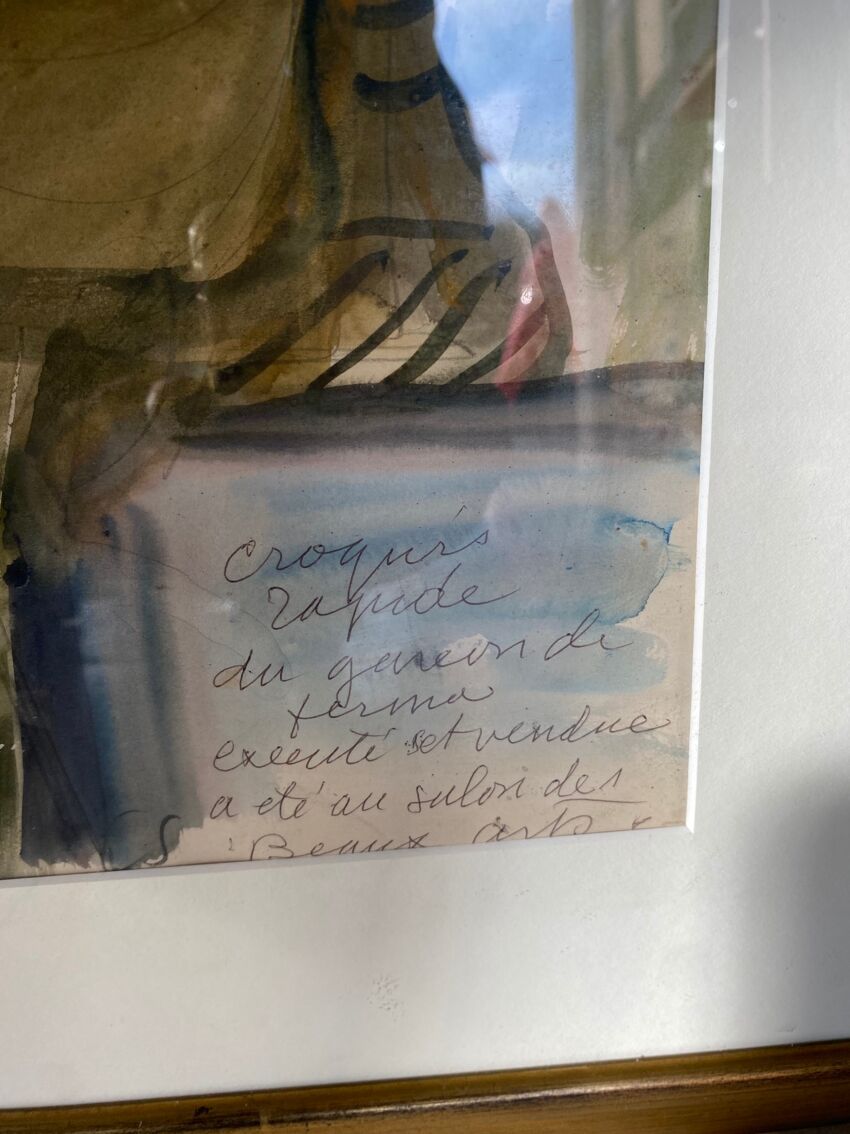 croquis
rapide
du garcon de
ferma
executé et vendue
a eté au salon des
Beaux arts